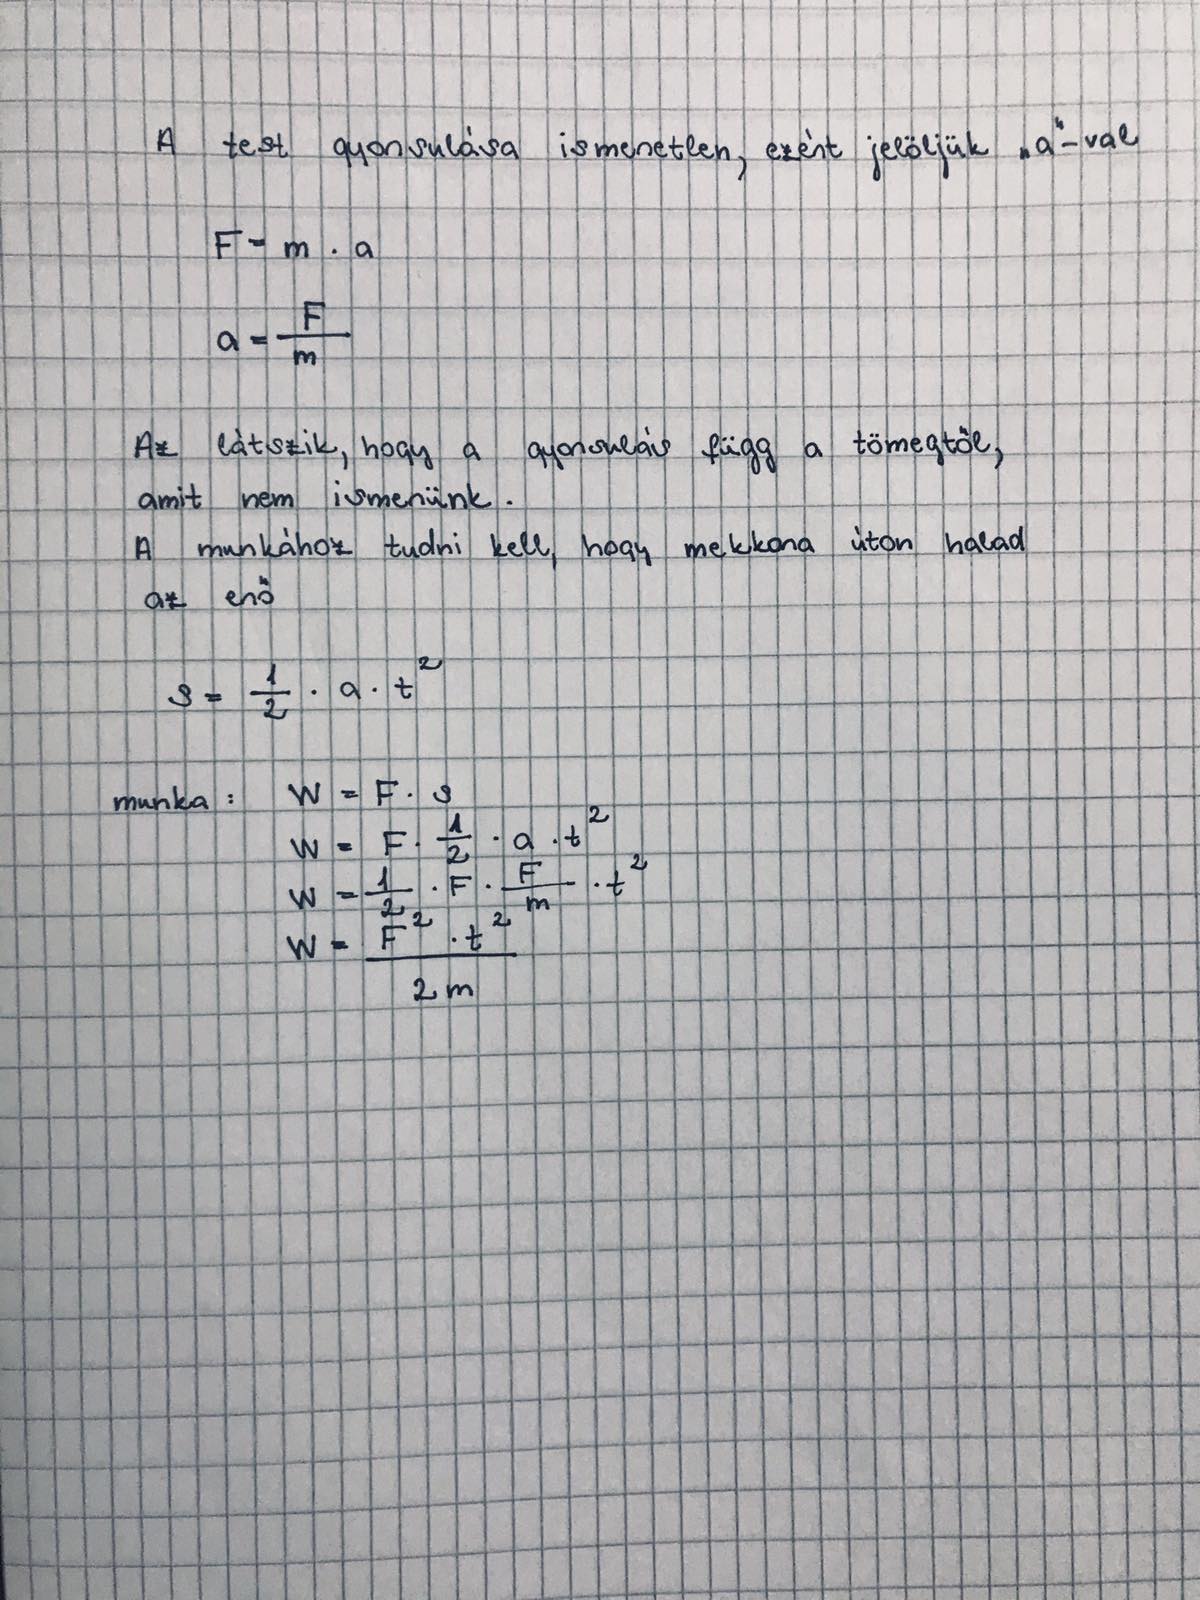 A test gyorsulása ismeretlen, ezért jelöljük „a"-val
F = m · a
a = F/m
Az látszik, hogy a gyorsulás függ a tömegtől,
amit nem ismerünk.
A munkához tudni kell, hogy mekkora úton halad
az erő
s = 1/2 · a · t²
munka: W = F · s
W = F · 1/2 · a · t²
W = 1/2 · F · F/m · t²
W = F² · t² / 2m